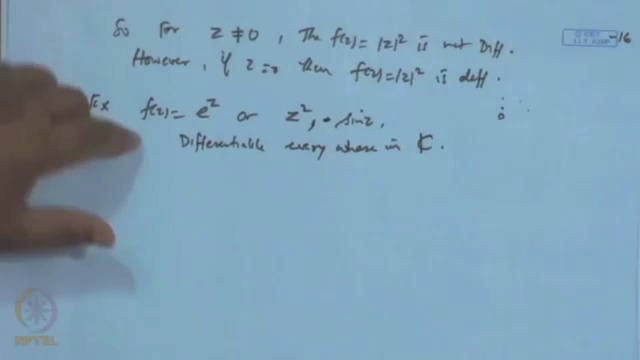 So For z ≠ 0, The f(z) = |z|² is not Diff.
However, if z = 0 then f(z) = |z|² is diff.
Ex f(z) = e^z or z², sin z,
Differentiable every where in ℂ.
© CET
I.I.T. KGP
-16
0
NPTEL